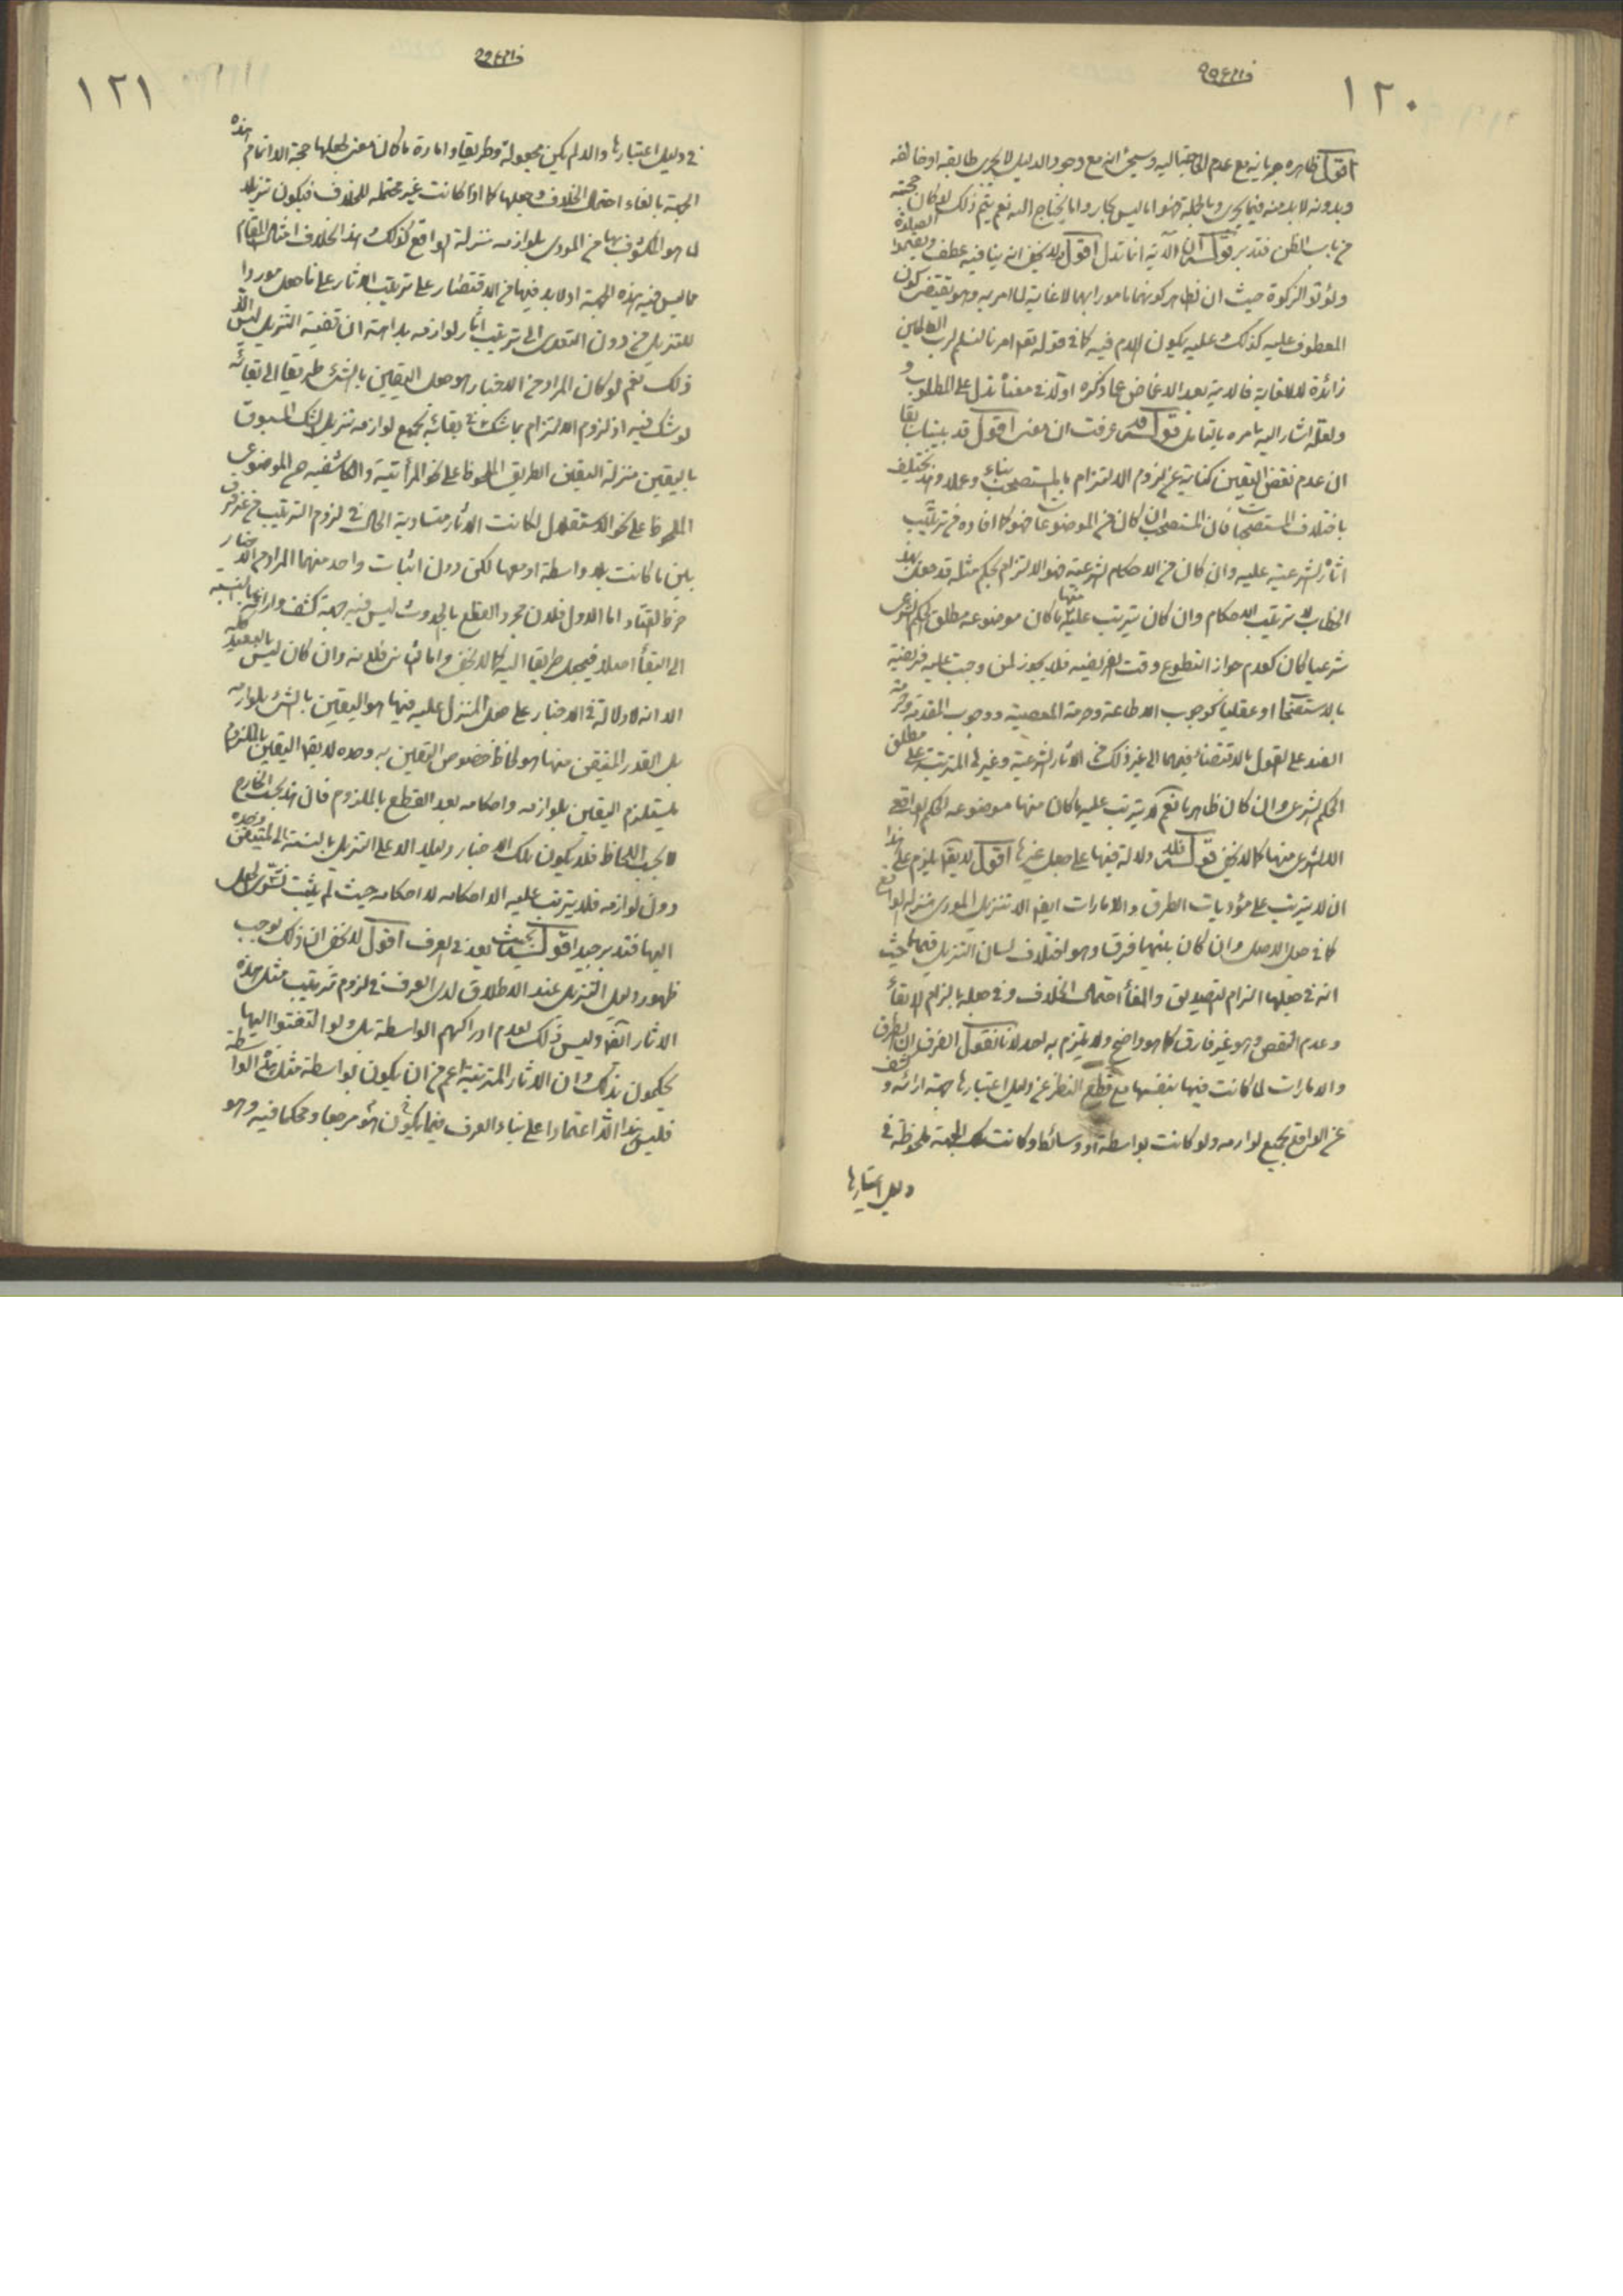 ١٢٠
اقول ظاهره جريانه مع عدم الاحتياج اليه وسيجئ انه مع وجود الدليل لا يجرى طابقه او خالفه
وبدونه لا بد منه فيما يجرى وبالجملة فهو اما ليس بجار واما يحتاج اليه نعم يتم ذلك لو كان حجيته
من باب الظن فتدبر قوله ان الآية انما تدل اقول لا يخفى انه ينافيه عطف ويقيموا الصلوة
ويؤتوا الزكوة حيث ان ظاهر كونهما مامورا بهما لا غاية لما امر به وهو يقتضى كون
المعطوف عليه كذلك وعليه يكون اللام فيه كما فى قوله تعه امرنا لنسلم لرب العالمين
زائدة لا للغاية فالاية بعد الاغماض عما ذكره اولا فى معناه تدل على المطلوب و
ولعله اشار اليه بامره بالتامل قوله قد عرفت ان معنى اقول قد بينا سابقا
ان عدم نقض اليقين كناية عن لزوم الالتزام بالمستصحب بناء وعملا وهذا يختلف
باختلاف المستصحبات فان المستصحب ان كان من الموضوعات فهو كما افاده من ترتيب
اثاره الشرعية عليه وان كان من الاحكام الشرعية فهو الالتزام بحكم مثله قد جعل بهذا
الخطاب لا ترتيب الاحكام وان كان يترتب عليه منها ما كان موضوعه مطلق الحكم الشرعى
شرعيا كان كعدم جواز التطوع وقت الفريضه فلا يجوز لمن وجبت عليه فريضة
بالاستصحاب او عقليا كوجوب الاطاعة وحرمة المعصية ووجوب المقدمة وحرمة
الضد على القول بالاقتضاء فيهما الى غير ذلك من الآثار الشرعية وغيرها المترتبة على مطلق
الحكم الشرعى وان كان ظاهريا نعم لا يترتب عليه ما كان منها موضوعه الحكم الواقعى
الا الشرعى منها كما لا يخفى قوله فلا دلالة فيها على جعل غيرها اقول لا يقال يلزم على هذا
ان لا يترتب على مؤديات الطرق والامارات ايضا الا تنزيل المؤدى منزلة الواقع
كما فى جعل الاصل وان كان بينهما فرقا وهو اختلاف لسان التنزيل فيهما حيث
انه فى جعلها الزام لتصديق والغاء احتمال الخلاف وفى جعله بالزام الابقاء
وعدم النقض وهو غير فارق كما هو واضح ولا يلتزم به احد لانا نقول الفرق ان الطرق
والامارات لما كانت فيها بنفسها مع قطع النظر عن دليل اعتبارها جهة ارائه وكشف
عن الواقع بجميع لوازمه ولو كانت بواسطة او وسائط وكانت تلك الجهة ملحوظة فى
دليل اعتبارها
١٢١
فى دليل اعتبارها والا لم يكن مجعولة وطريقا وامارة ما كان معنى لجعلها حجة الا اتمام هذه
الجهة بالغاء احتمال الخلاف وجعلها كما اذا كانت غير محتمله للخلاف فيكون تنزيلا
لما هو المكشوف بها من المؤدى بلوازمه منزلة الواقع كذلك وهذا بخلاف امثال المقام
مما ليس فيه هذه الجهة اذ لا بد فيها من الاقتصار على ترتيب الآثار على ما جعل موردا
للتنزيل من دون التعدى الى ترتيب آثار لوازمه بداهة ان قضية التنزيل ليس الا
ذلك نعم لو كان المراد من الاخبار هو جعل اليقين بالشئ طريقا الى بقائه
لو شك فيه او لزوم الالتزام بما شك فى بقائه بجميع لوازمه تنزيل الشك المسبوق
باليقين منزلة اليقين الطريق الملحوظ على نحو المرآتية والكاشفيه عن الموضوع
الملحوظ على نحو الاستقلال لكانت الآثار متساوية الحال فى لزوم الترتيب من غير فرق
بين ما كانت بلا واسطة او معها لكن دون اثبات واحد منهما المراد من الاخبار
خرط القتاد اما الاول فلان مجرد القطع بالحدوث ليس فيه جهة كشف واراءة بالنسبة
الى البقاء اصلا فيجعل طريقا اليه كما لا يخفى واما الثانى فلعله وان كان ليس بالبعيد
الا انه لا دلالة فى الاخبار على جعل المنزل عليه فيها هو اليقين بالشئ بلوازمه
بل القدر المتيقن منها هو لحاظ خصوص اليقين به وحده لا يقال اليقين بالملزوم
يستلزم اليقين بلوازمه واحكامه بعد القطع بالملزوم فان هذا بحسب الخارج
لا بحسب اللحاظ فلا يكون تلك الاخبار دليلا الا على التنزيل بالنسبة الى المتيقن وحده
دون لوازمه فلا يترتب عليه الا احكامه لا احكامه حيث لم يثبت
اليها فتدبر جيدا قوله بحيث يعد فى العرف اقول لا يخفى ان ذلك يوجب
ظهور دليل التنزيل عند الاطلاق لدى العرف فى لزوم ترتيب مثل هذه
الآثار ايضا وليس ذلك لعدم ادراكهم الواسطة بل ولو التفتوا اليها
يحكمون بذلك وان الآثار المترتبة اعم من ان يكون بواسطة مثل هذه الواسطة
فليس هذا الا اعتمادا على بناء العرف فيما يكون هو مرجعا ومحكما فيه وهو